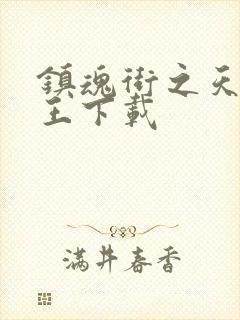 鎮魂街之天
王下載
滿井春香